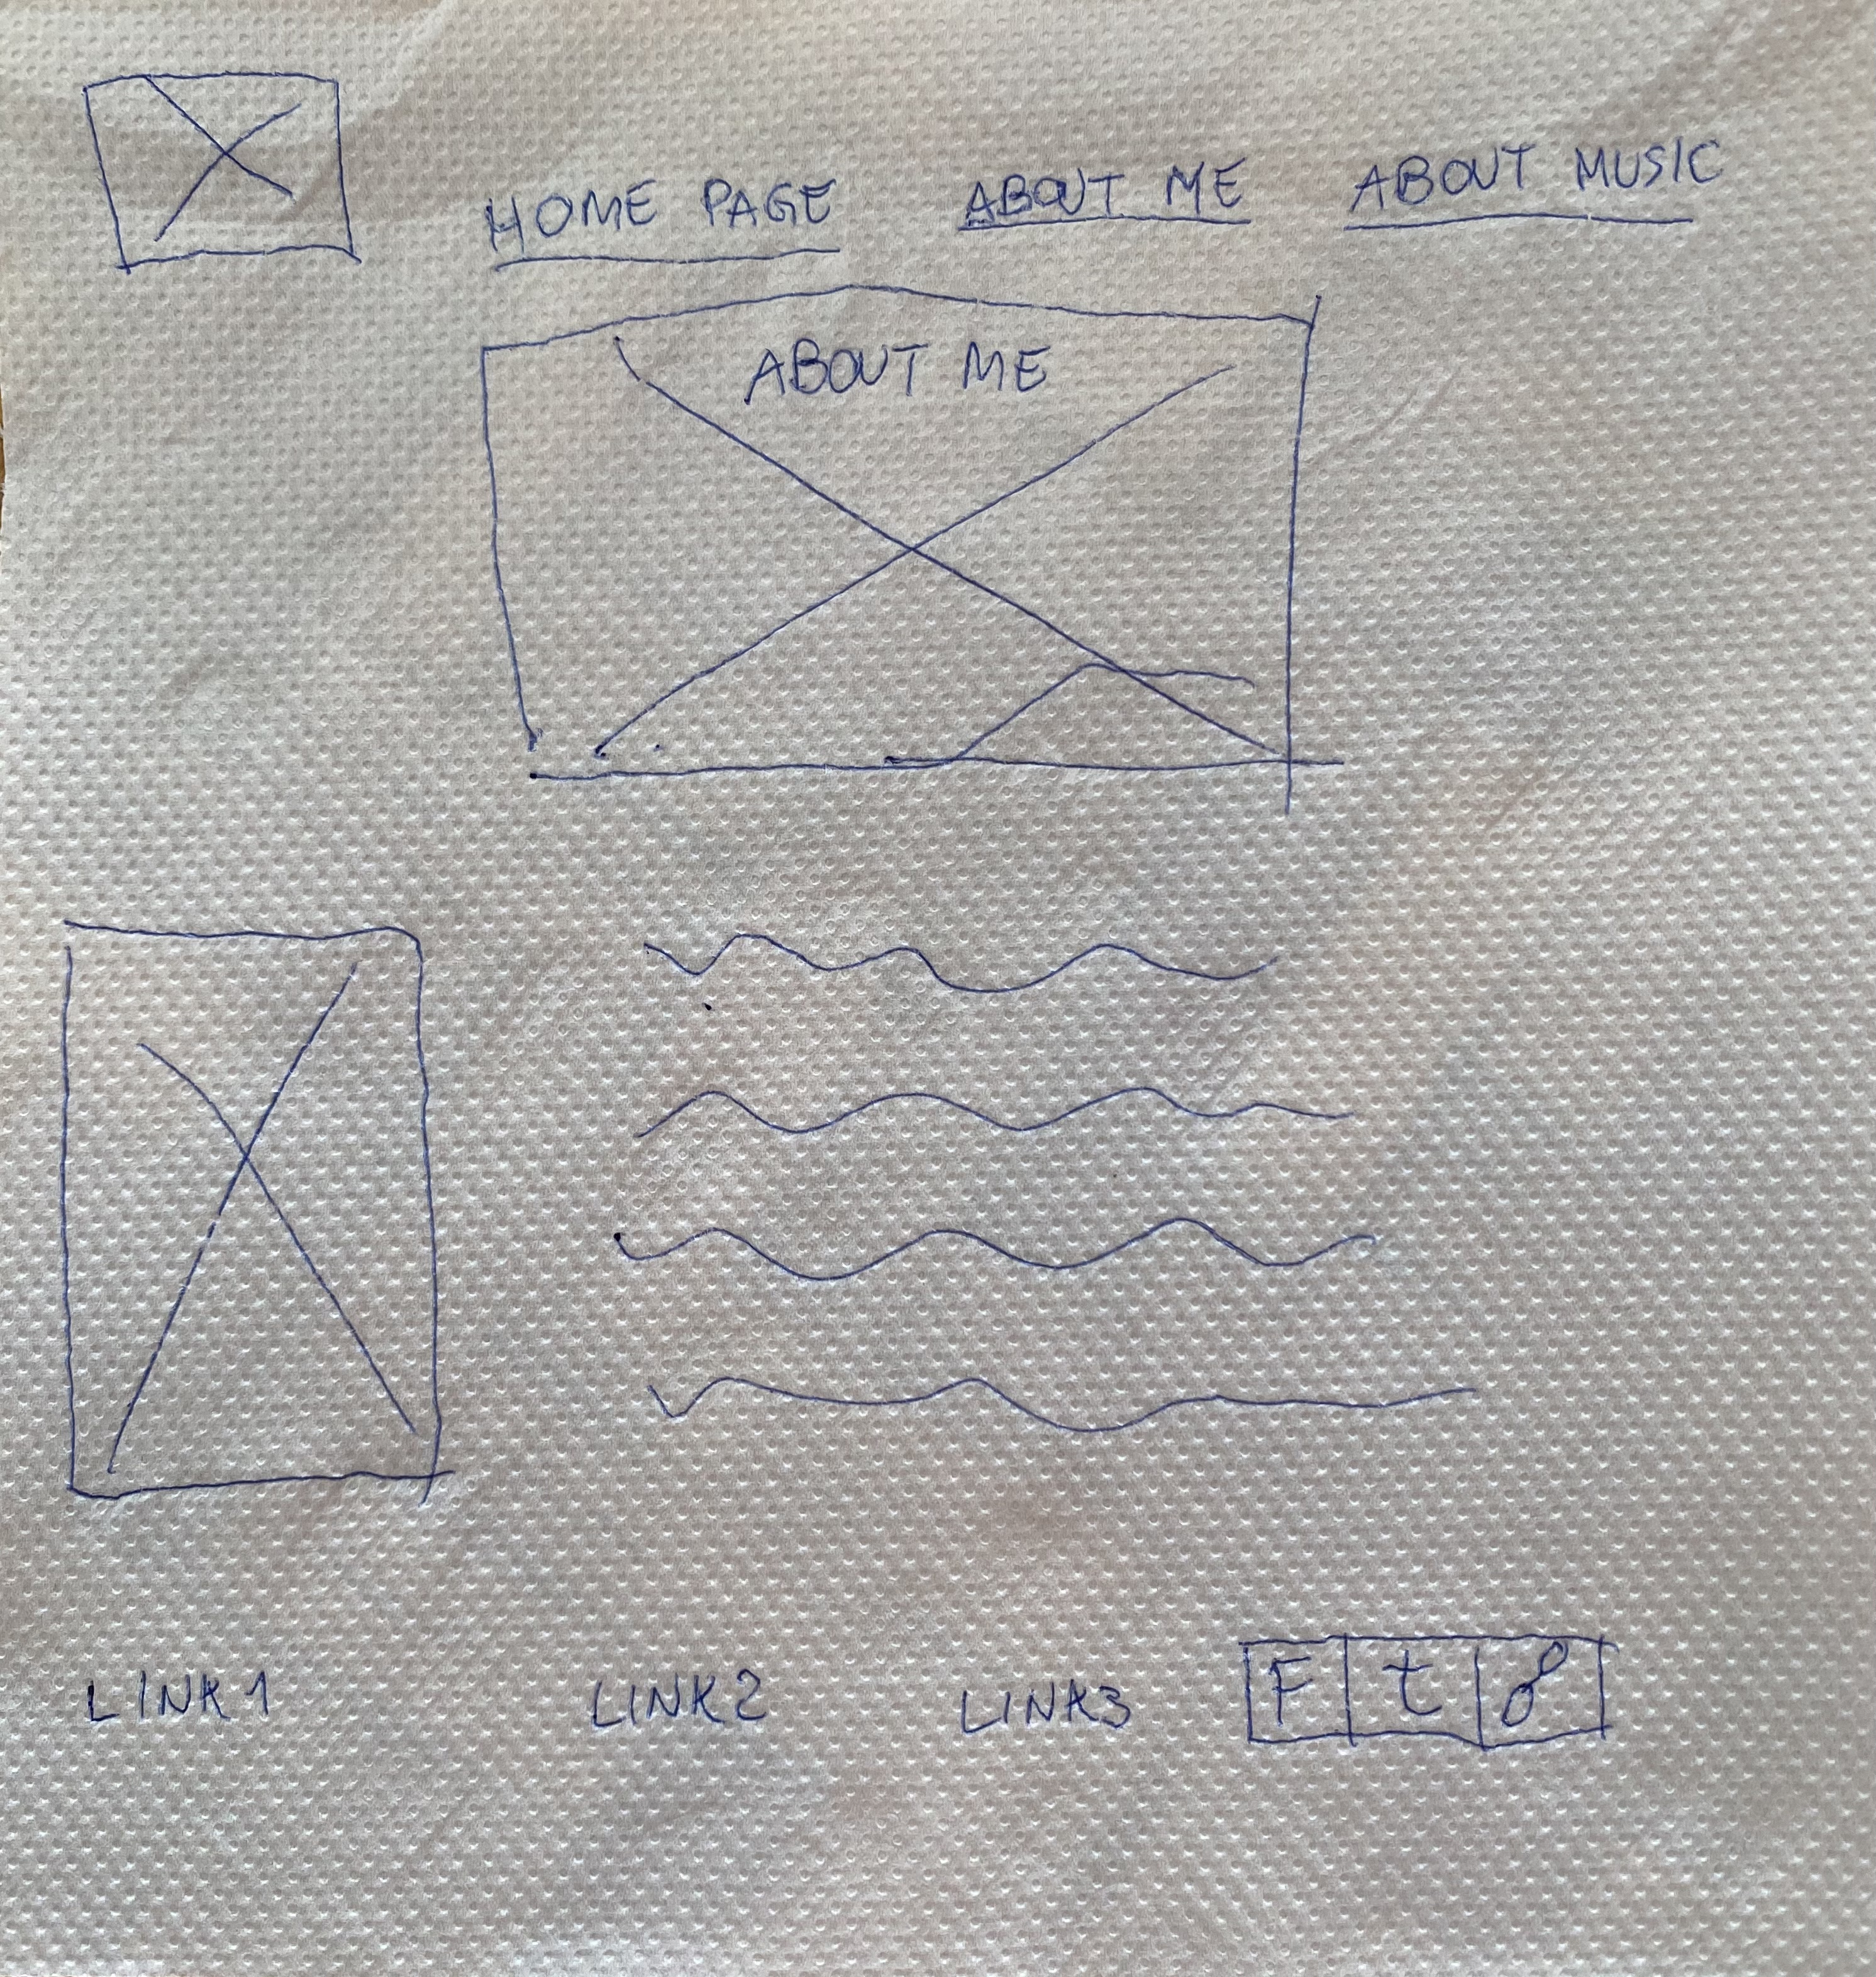 HOME PAGE ABOUT ME ABOUT MUSIC
ABOUT ME
LINK1 LINK2 LINK3 F t